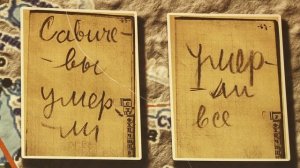 Савиче-
-вы
умер
-ли
умер-
ли
все